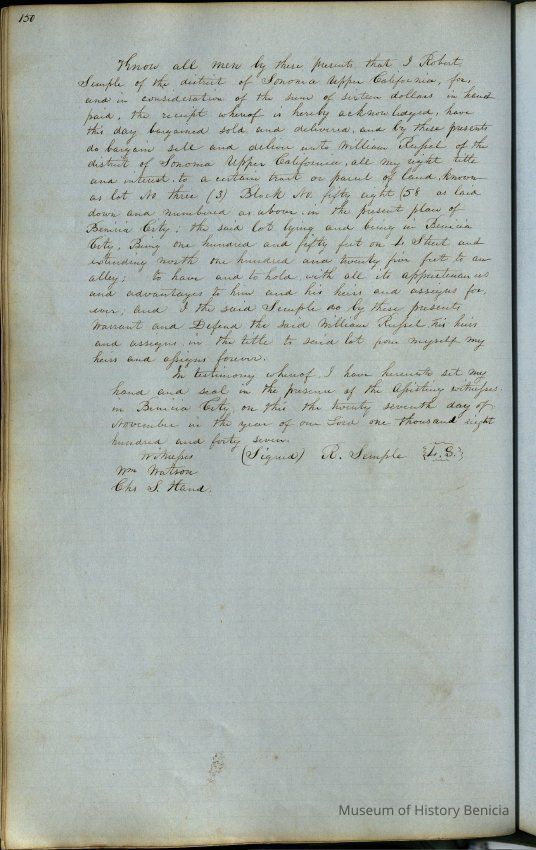 150
Know all men by these presents that I Robert
Semple of the district of Sonoma Upper California, for,
and in consideration of the sum of sixteen dollars in hand
paid, the receipt whereof is hereby acknowledged, have
this day bargained sold and delivered, and by these presents
do bargain sell and deliver unto William Russel of the
district of Sonoma Upper California, all my right title
and interest to a certain tract or parcel of land, known
as lot No three (3) Block No fifty eight (58 as laid
down and numbered as above in the present plan of
Benicia City; the said lot lying and being in Benicia
City, Being one hundred and fifty feet on L Street and
extending north one hundred and twenty five feet to an
alley; to have and to hold with all its appurtenances
and advantages to him and his heirs and assigns for
ever; and I the said Semple do by these presents
Warrant and Defend the said William Russel his heirs
and assigns in the title to said lot from myself my
heirs and assigns forever.
In testimony whereof I have hereunto set my
hand and seal in the presence of the assisting witnesses
in Benicia City on this the twenty seventh day of
November in the year of our Lord one thousand eight
hundred and forty seven.
Witnesses (Signed) R. Semple L.S.
Wm Watson
Chs S. Hand.
Museum of History Benicia